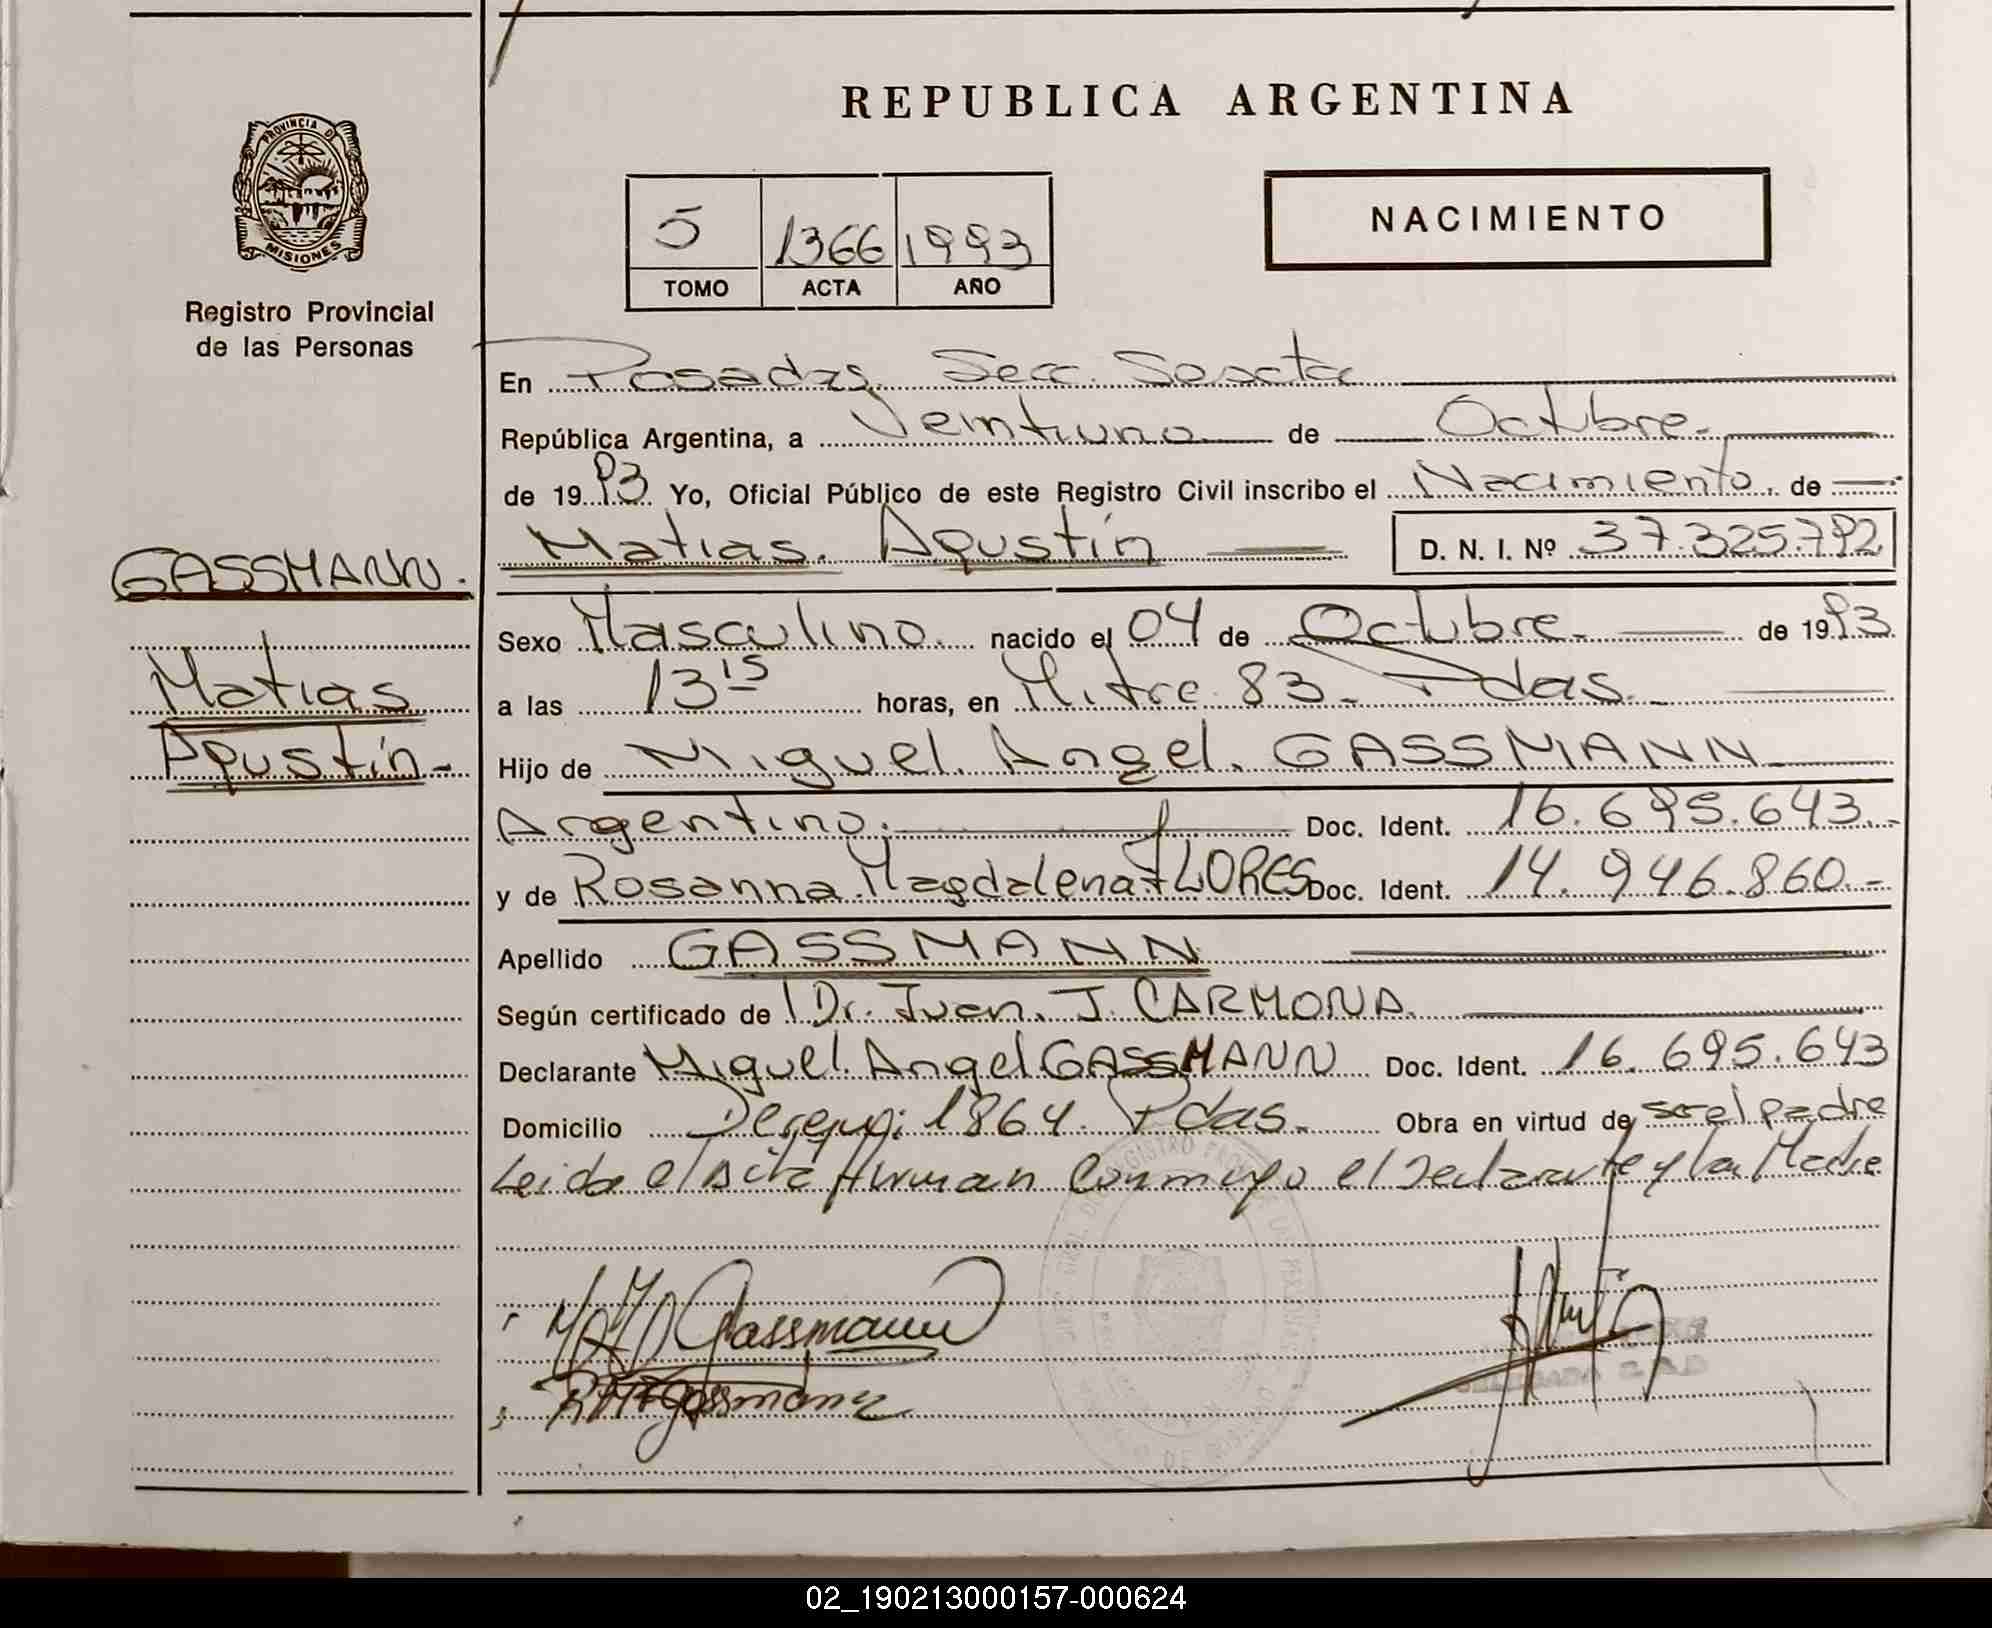 REPUBLICA ARGENTINA
PROVINCIA DE
MISIONES
Registro Provincial
de las Personas
5 1366 1993
TOMO ACTA AÑO
NACIMIENTO
En Posadas Secc. Sexta
República Argentina, a Veintiuno de Octubre.
de 1993 Yo, Oficial Público de este Registro Civil inscribo el Nacimiento. de
GASSMANN.
Matias
Agustín
Matias. Agustín D. N. I. Nº 37.325.792
Sexo Masculino. nacido el 04 de Octubre. de 1993.
a las 13 15 horas, en Mitre 83 - Pdas.
Hijo de Miguel. Angel. GASSMANN
Argentino. Doc. Ident. 16.695.643.-
y de Rosanna Magdalena FLORES Doc. Ident. 14.946.860.-
Apellido GASSMANN
Según certificado de Dr. Juan. J. CARMONA.
Declarante Miguel. Angel GASSMANN Doc. Ident. 16.695.643
Domicilio 1864. Pdas. Obra en virtud de ser el padre
Leida el Acta firman conmigo el Declarante y la Madre
Gassmann
Gassmann
02_190213000157-000624